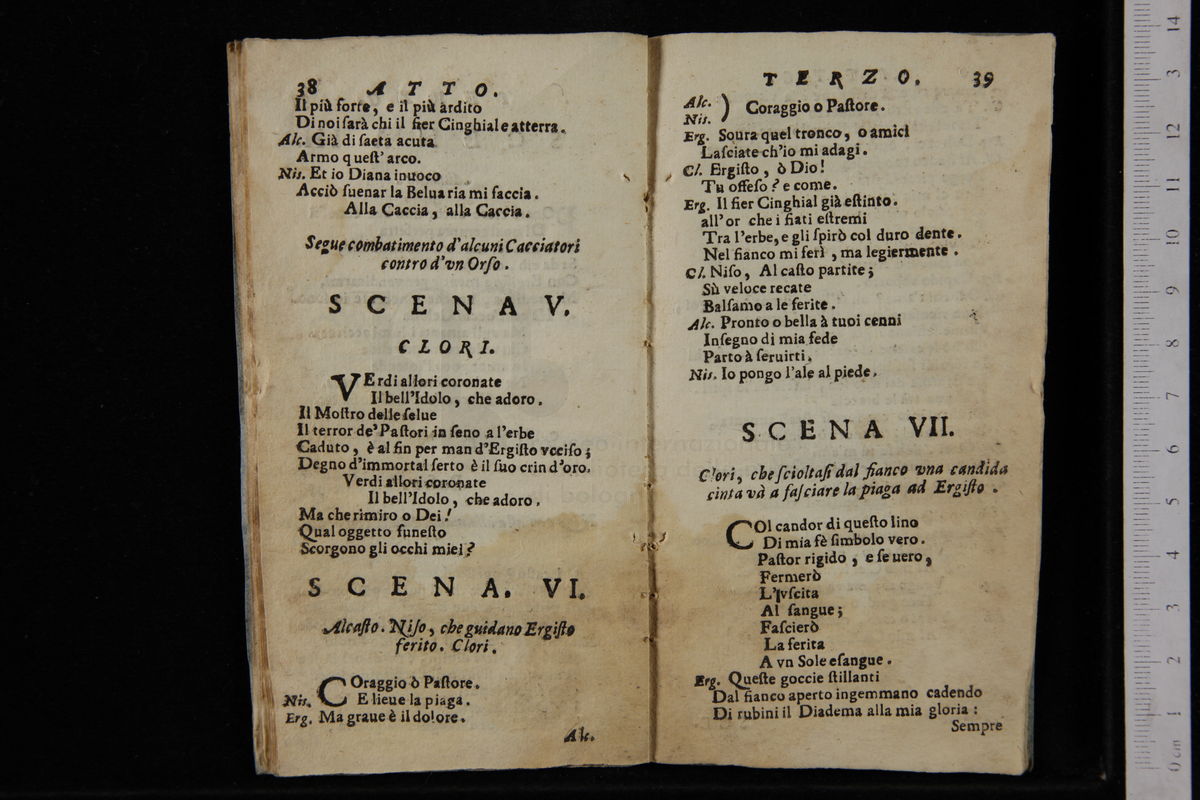 38 ATTO.
Il più forte, e il più ardito
Di noi sarà chi il fier Cinghiale atterra.
Alc. Già di saeta acuta
Armo quest' arco.
Nis. Et io Diana inuoco
Acciò suenar la Belua ria mi faccia.
Alla Caccia, alla Caccia.
Segue combatimento d'alcuni Cacciatori
contro d'vn Orso.
SCENA V.
CLORI.
VErdi allori coronate
Il bell'Idolo, che adoro.
Il Mostro delle selue
Il terror de' Pastori in seno a l'erbe
Caduto, è al fin per man d'Ergisto vcciso;
Degno d'immortal serto è il suo crin d'oro.
Verdi allori coronate
Il bell'Idolo, che adoro.
Ma che rimiro o Dei!
Qual oggetto funesto
Scorgono gli occhi miei?
SCENA. VI.
Alcasto. Niso, che guidano Ergisto
ferito. Clori.
COraggio ò Pastore.
Nis. E lieue la piaga.
Erg. Ma graue è il dolore.
Alc.
TERZO. 39
Alc.
Nis. ) Coraggio o Pastore.
Erg. Soura quel tronco, o amici
Lasciate ch'io mi adagi.
Cl. Ergisto, ò Dio!
Tu offeso? e come.
Erg. Il fier Cinghial già estinto.
all'or che i fiati estremi
Tra l'erbe, e gli spirò col duro dente.
Nel fianco mi ferì, ma legiermente.
Cl. Niso, Alcasto partite;
Sù veloce recate
Balsamo a le ferite.
Alc. Pronto o bella à tuoi cenni
In segno di mia fede
Parto à seruirti.
Nis. Io pongo l'ale al piede.
SCENA VII.
Clori, che scioltasi dal fianco vna candida
cinta và a fasciare la piaga ad Ergisto.
COl candor di questo lino
Di mia fè simbolo vero.
Pastor rigido, e seuero,
Fermerò
L'vscita
Al sangue;
Fascierò
La ferita
A vn Sole esangue.
Erg. Queste goccie stillanti
Dal fianco aperto ingemmano cadendo
Di rubini il Diadema alla mia gloria:
Sempre
14
13
12
11
10
9
8
7
6
5
4
3
2
1
0 cm